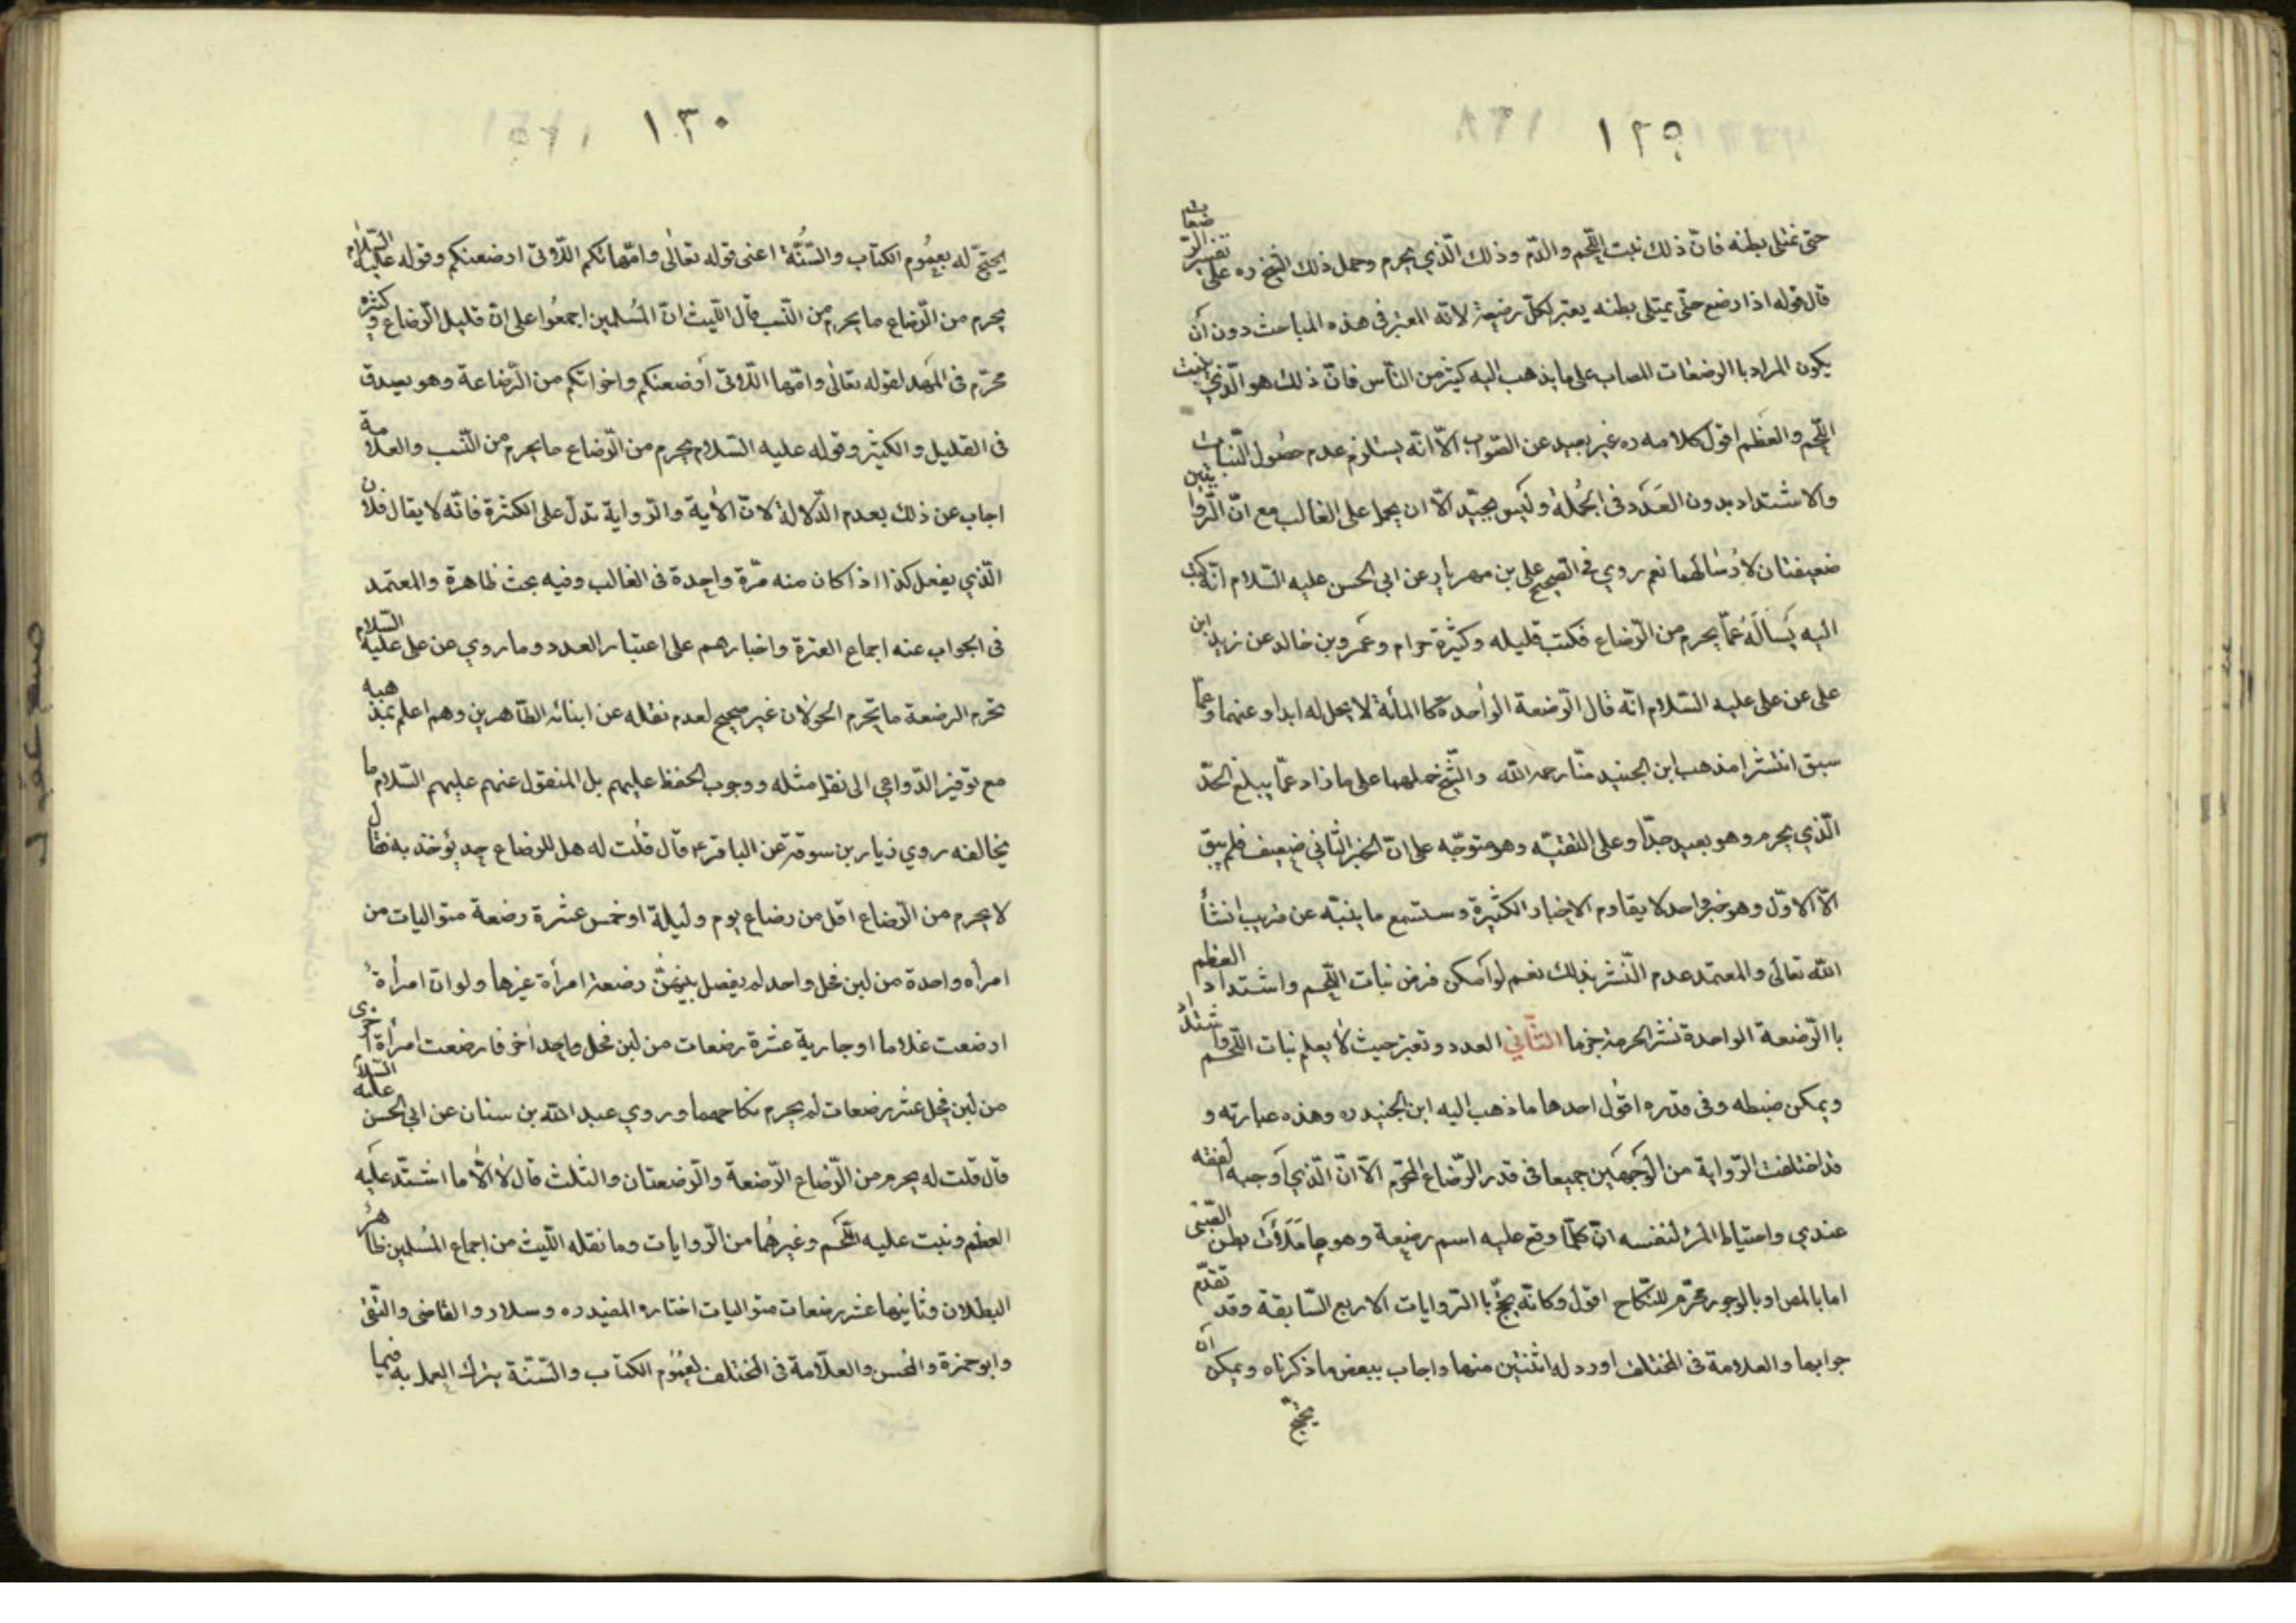 ١٢٩
حتى تمتلى بطنه فانّ ذلك نبت اللّحم والدّم وذلك الّذي يحرم وحمل ذلك الشيخ ره على تفسير الرّضعات
قال قوله اذا رضع حتّى يمتلى بطنه يعتبر لكلّ رضيعة لانّه المعتبر فى هذه المباحث دون أن
يكون المراد باالرضعات المصاب على ما يذهب اليه كثير من النّاس فانّ ذلك هو الّذي ينبت
اللّحم والعظم اقول كلامه ره غير بعيد عن الصّواب الّا انّه يستلزم عدم حصُول النّبات
والاشتداد بدون العَدد فى الجُملة وليس بجيّد الّا ان يحمل على الغالب مع انّ الرّوايتين
ضعيفتان لارسٰالهما نعم روي فى الصّحيح على بن مهريار عن ابى الحسن عليه السّلام انّه كتب
اليه يَسألَهُ عمّا يحرم من الرّضاع فكتب قليله وكثيرة حرام وعمرو بن خالد عن زيد ابن
على عن على عليه السّلام انّه قال الرّضعة الواحدة كا المأئة لا يحل له ابدا وعنهما وعمّا
سبق انتشرا مذهب ابن الجنيد منّا رحمه اللّه والشّيخ حملهما على ما زاد عمّا يبلغ الحدّ
الّذي يحرم وهو بعيد جدّا وعلى التقيّه وهو متوجّه على انّ الخبر الثّاني ضعيف فلم يبق
الّا الاوّل وهو خبر واحد لا يقادم الاخبار الكثيرة وستسمع ما ينبّه عن قريب انشأ
اللّه تعالى والمعتمد عدم النّشر بذلك نعم لو أمكن فرض نبات اللّحم واشتداد العظم
باالرّضعة الواحدة نشر الحرمة جزما الثّاني العدد وتعبّر حيث لا يعلم نبات اللّحم واشتداد
ويمكن ضبطه وفى قدره اقول احدها ما ذهب اليه ابن الجنيد ره وهذه عبارته و
قد اختلفت الرّواية من الوَجهَين جميعا فى قدر الرّضاع المحرّم الّا انّ الّذي أوجبه الفقه
عندي واحتياط المرء لنفسه انّ كلّما وقع عليه اسم رضيعة وهو ما مَلَأت بطن الصّبّى
اما بالمص او بالوجور محرّم للنّكاح اقول وكانّه يحتجّ باالرّوايات الاربع السّابقة وقد تقدّم
جوابها والعلامة فى المختلف اورد له اثنتين منها واجاب ببعض ما ذكرناه ويمكن ان
يحتجّ
١٣٠
يحتجّ له بعمُوم الكتاب والسُّنّة اعنى قوله تعالى وامّهاتكم الّلاتى ارضعنكم وقوله عليه السّلام
يحرم من الرّضاع ما يحرم من النّسب قال اللّيث انّ المُسلمين اجمعُوا على انّ قليل الرّضاع وكثيره
محرّم فى المَهد لقوله تعالى وامّها الّلاتى أرضعنكم واخواتكم من الرّضاعة وهو يصدق
فى القليل والكثير وقوله عليه السّلام يحرم من الرّضاع ما يحرم من النّسب والعلامة
اجاب عن ذلك بعدم الدّلالة لانّ الأية والرّواية تدلّ على الكثرة فانّه لا يقال فلان
الّذي يفعل كذا اذا كان منه مّرة واحدة فى الغالب وفيه بحث ظاهرة والمعتمد
فى الجواب عنه اجماع العترة واخبارهم على اعتبار العدد وما روي عن على عليه السّلام
تحرم الرضعة ما يحرم الحولان غير صحيح لعدم نقله عن ابنائه الطّاهرين وهم اعلم بمذهبه
مع توفّير الدّواعي الى نقل مثله ووجوب الحفظ عليهم بل المنقول عنهم عليهم السّلام ما
يخالفه روي زيار بن سوقة عن الباقر ع قال قُلت له هل للرضاع حد يؤخذ به فقال
لا يحرم من الرّضاع اقل من رضاع يوم وليلة او خمس عشرة رضعة متواليات من
امرأه واحدة من لبن فحل واحد لم يفصل بينهنّ رضعة امرأة غيرها ولو ان امرأةً
ارضعت غلاما او جارية عشرة رضعات من لبن فحل واحد أخر فارضعت امرأة اخرى
من لبن فحل عشر رضعات لم يحرم نكاحهما وروي عبد اللّه بن سنان عن ابى الحسن عليه السّلام
قال قلت له يحرم من الرّضاع الرّضعة والرّضعتان والثلث قال لا الّا ما اشتدّ عليه
العظم ونبت عليه اللّحم وغيرهُما من الرّوايات وما نقله اللّيث من اجماع المُسلمين ظاهر
البطلان وثانيها عشر رضعات متواليات اختاره المفيد ره وسلار والقاضى والتّقى
وابو حمزة والحسن والعلّامة فى المختلف لعمُوم الكتاب والسّنّة بترك العمل به فيما